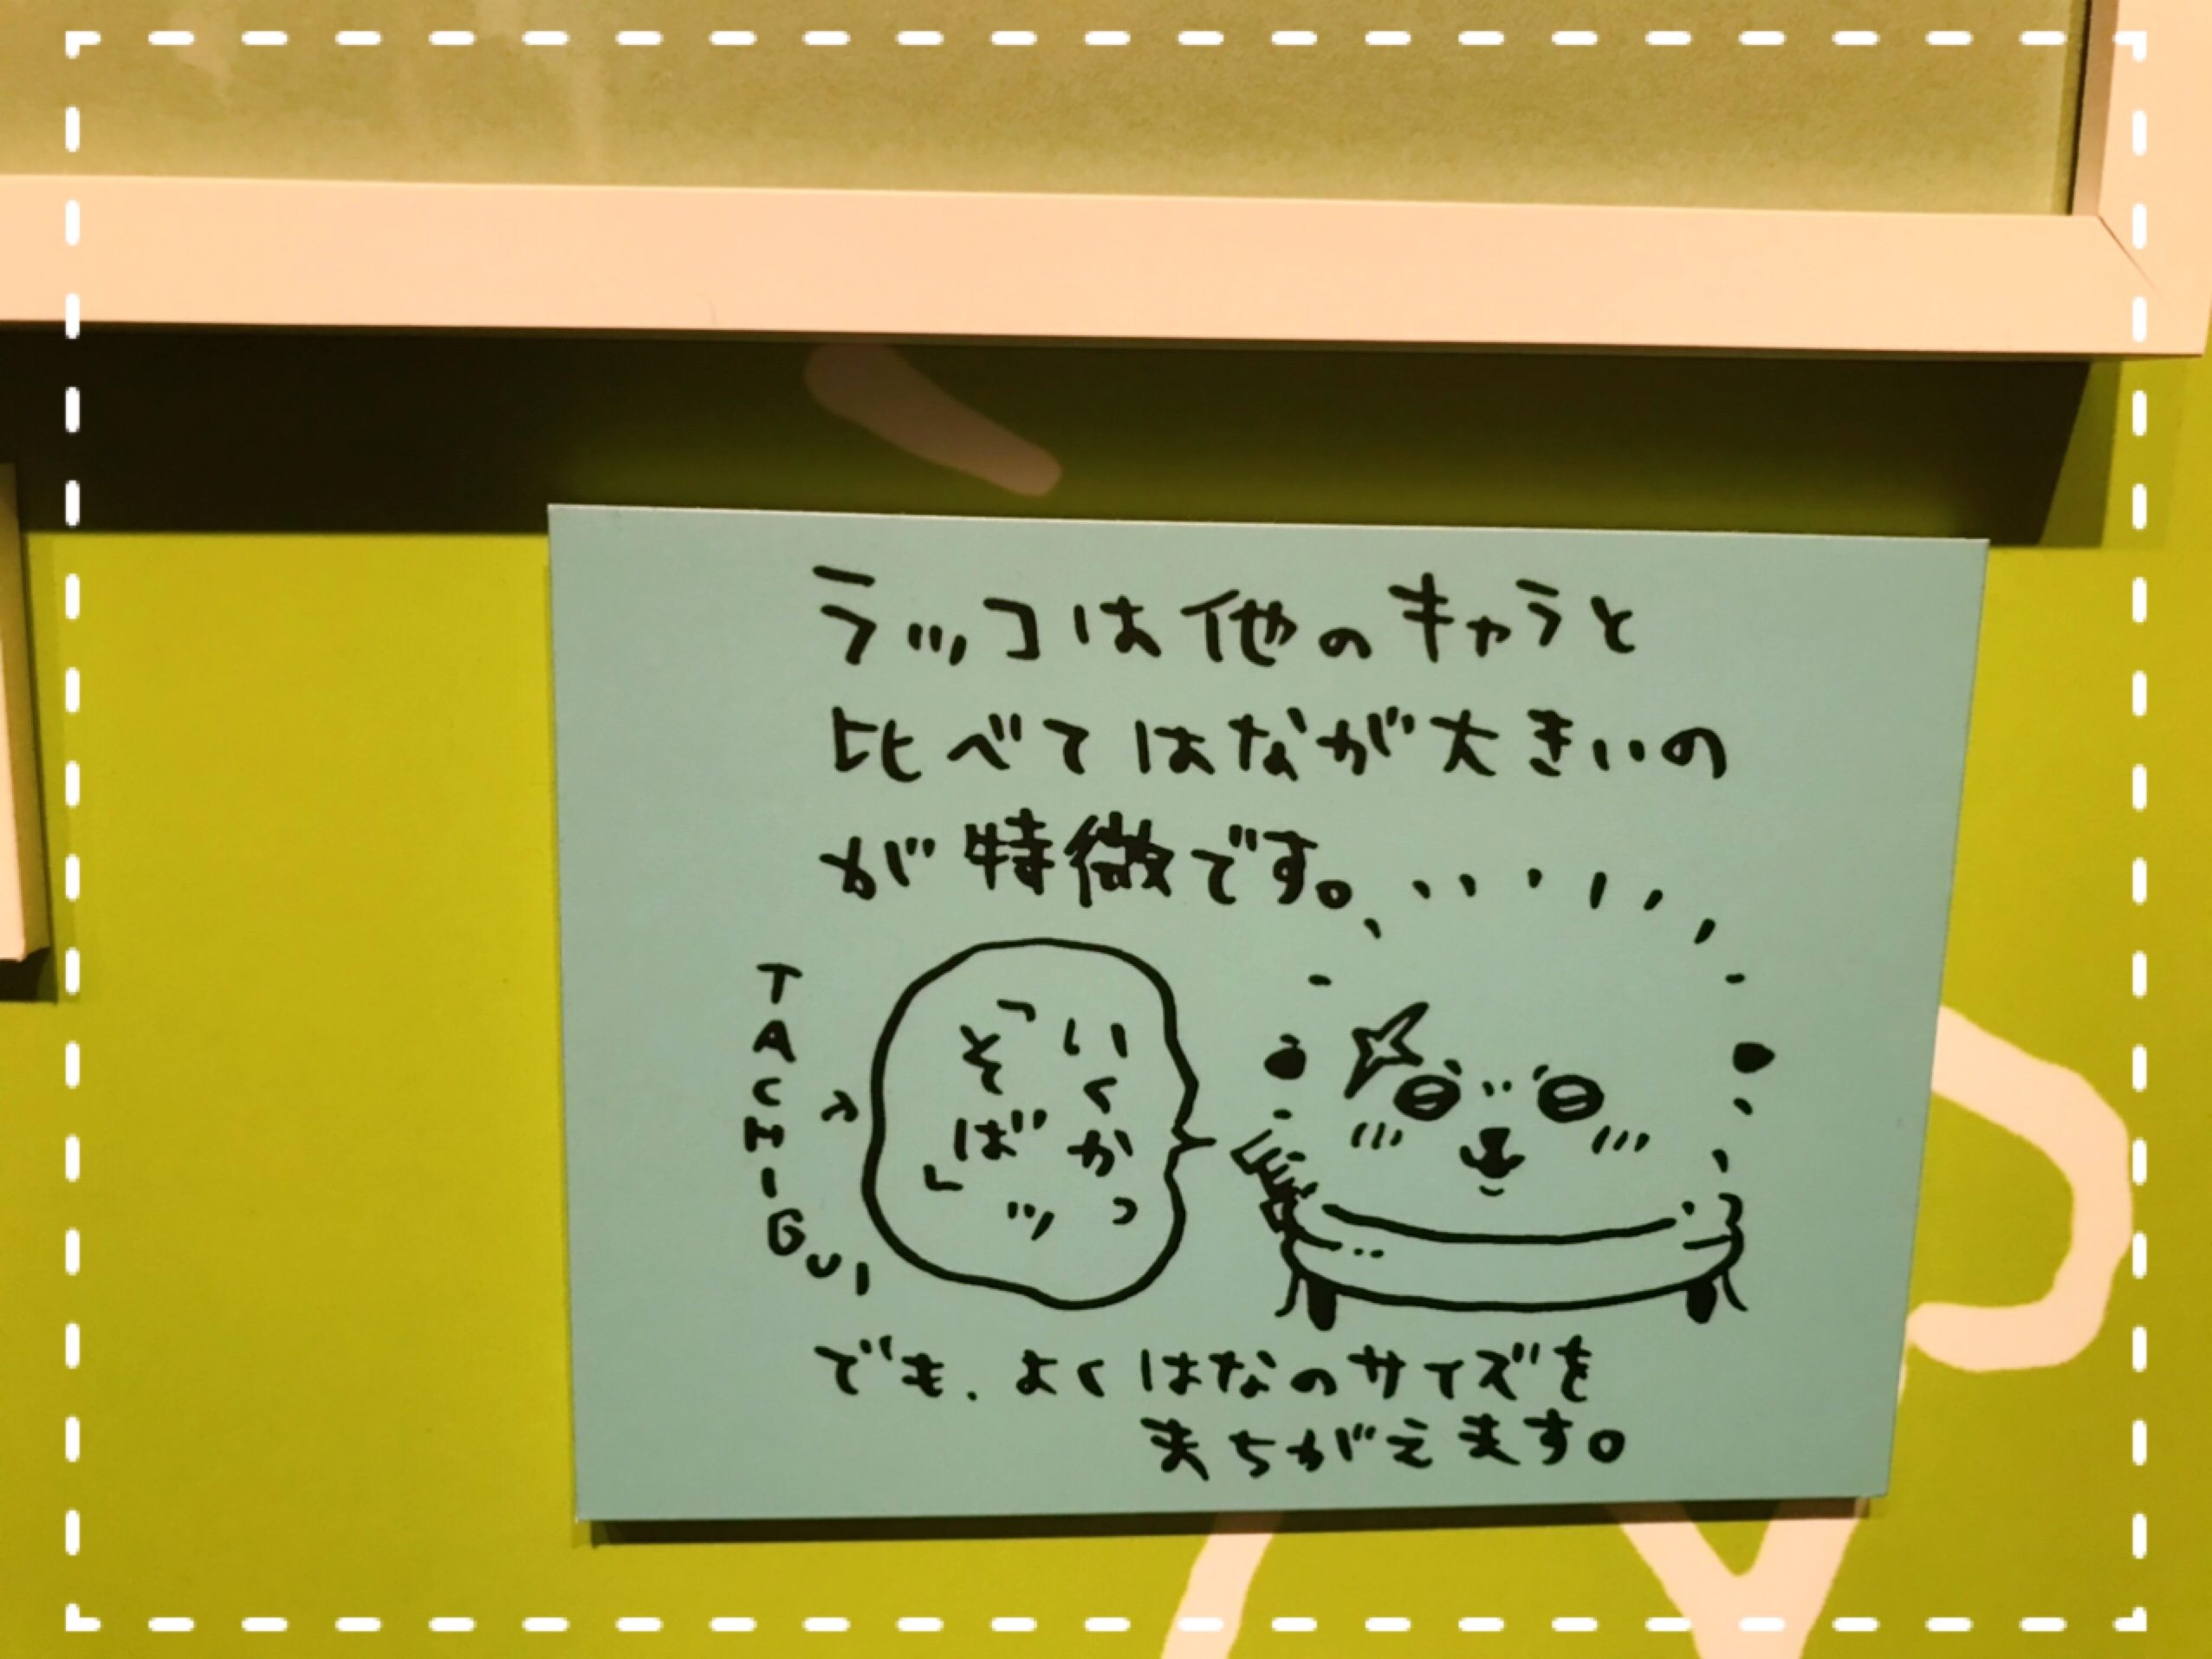 ラッコは他のキャラと
比べてはなが大きいの
が特徴です。
TACHIGUI
いくかっ
「そば」
ッ
でも、よくはなのサイズを
まちがえます。